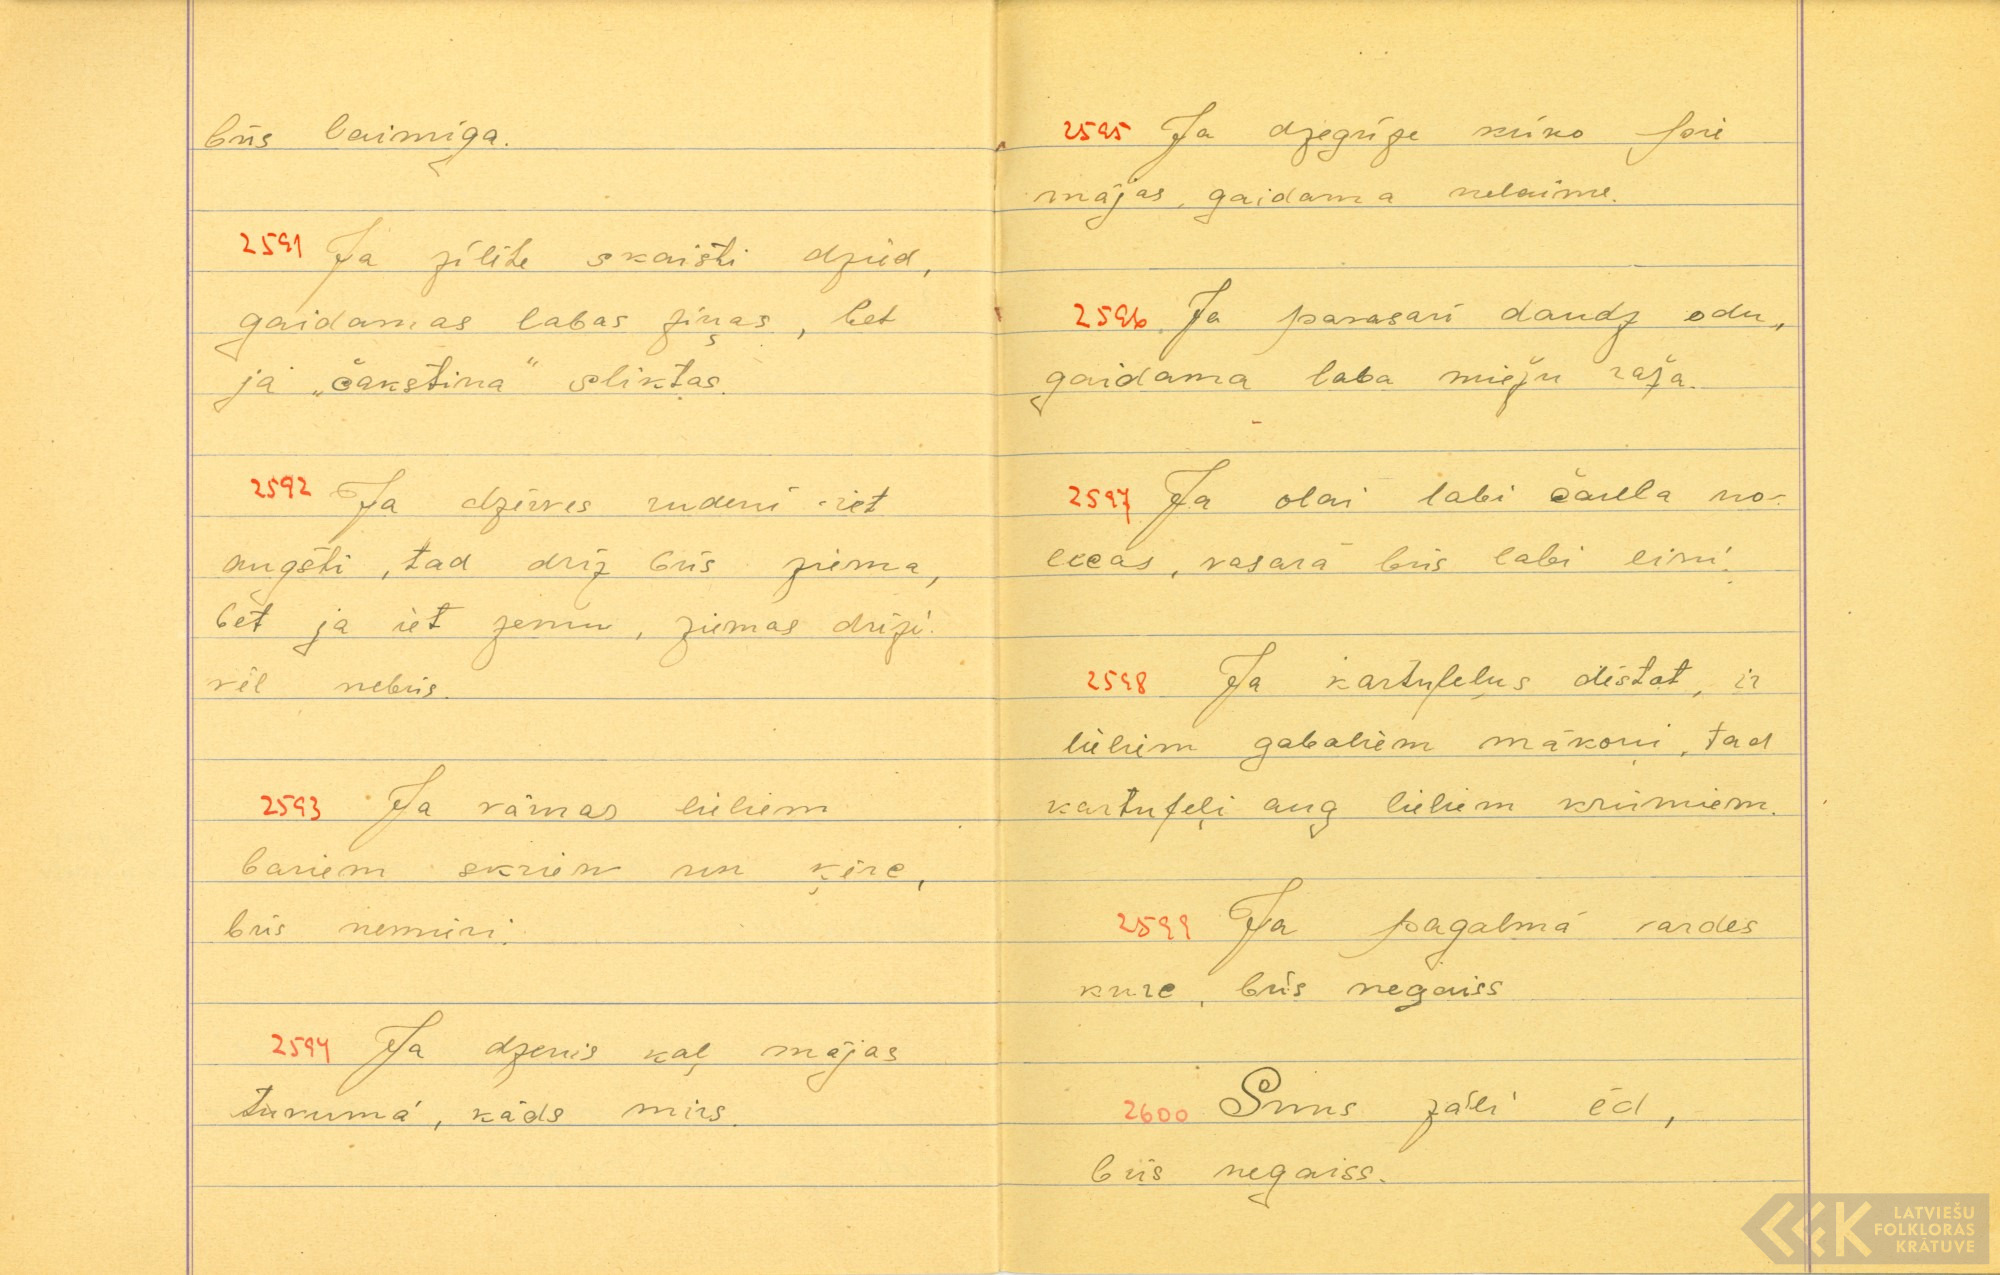 būs laimīga.
2591 Ja zīlīte skaisti dzied,
gaidamas labas ziņas, bet
ja „čakstina" sliktas.
2592 Ja dzērves rudenī iet
augsti, tad drīz būs ziema,
bet ja iet zemu, ziemas drīzi
vēl nebūs.
2593 Ja vārnas lieliem
bariem skrien un ķērc,
būs nemieri.
2594 Ja dzenis kaļ mājas
tuvumā, kāds mirs.
2595 Ja dzegūze kūko pie
mājas, gaidama nelaime.
2596 Ja pavasarī daudz odu,
gaidama laba miežu raža.
2597 Ja olai labi čaula no-
lecas, vasarā būs labi lini.
2598 Ja kartupeļus dēstot, ir
lieliem gabaliem mākoņi, tad
kartupeļi aug lieliem krūmiem.
2599 Ja pagalmā vardes
kurc, būs negaiss
2600 Suns zāli ēd,
būs negaiss.
LATVIEŠU
FOLKLORAS
KRĀTUVE